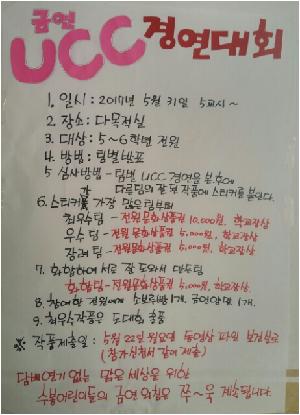 금연
UCC 경연대회
1. 일시 : 2017년 5월 31일 5교시~
2. 장소 : 다목적실
3. 대상 : 5~6학년 전원
4. 방법 : 팀별발표
5. 심사방법 - 팀별 UCC 경연을 본후에
각 다른팀의 잘된 작품에 스티커를 붙인다.
6. 스티커를 가장 많은팀부터
최우수팀 - 전원 문화상품권 10,000원, 학교장상
우수팀 - 전원문화상품권 5,000원, 학교장상
장려팀 - 전원문화상품권 5,000원, 학교장상
7. 화합하여서로 잘 도와서 만든팀
화합팀 - 전원문화상품권 5,000원, 학교장상
8. 참여한 전원에게 소보로빵1개, 금연양말 1개.
9. 최우수작품은 도대회 출품
※ 작품제출일 : 5월 22일 월요일 동영상 파일 보건실로
(참가신청서 같이 제출)
담배연기없는 맑은 세상을 위한
수봉어린이들의 금연 외침은 쭈~욱 계속됩니다.